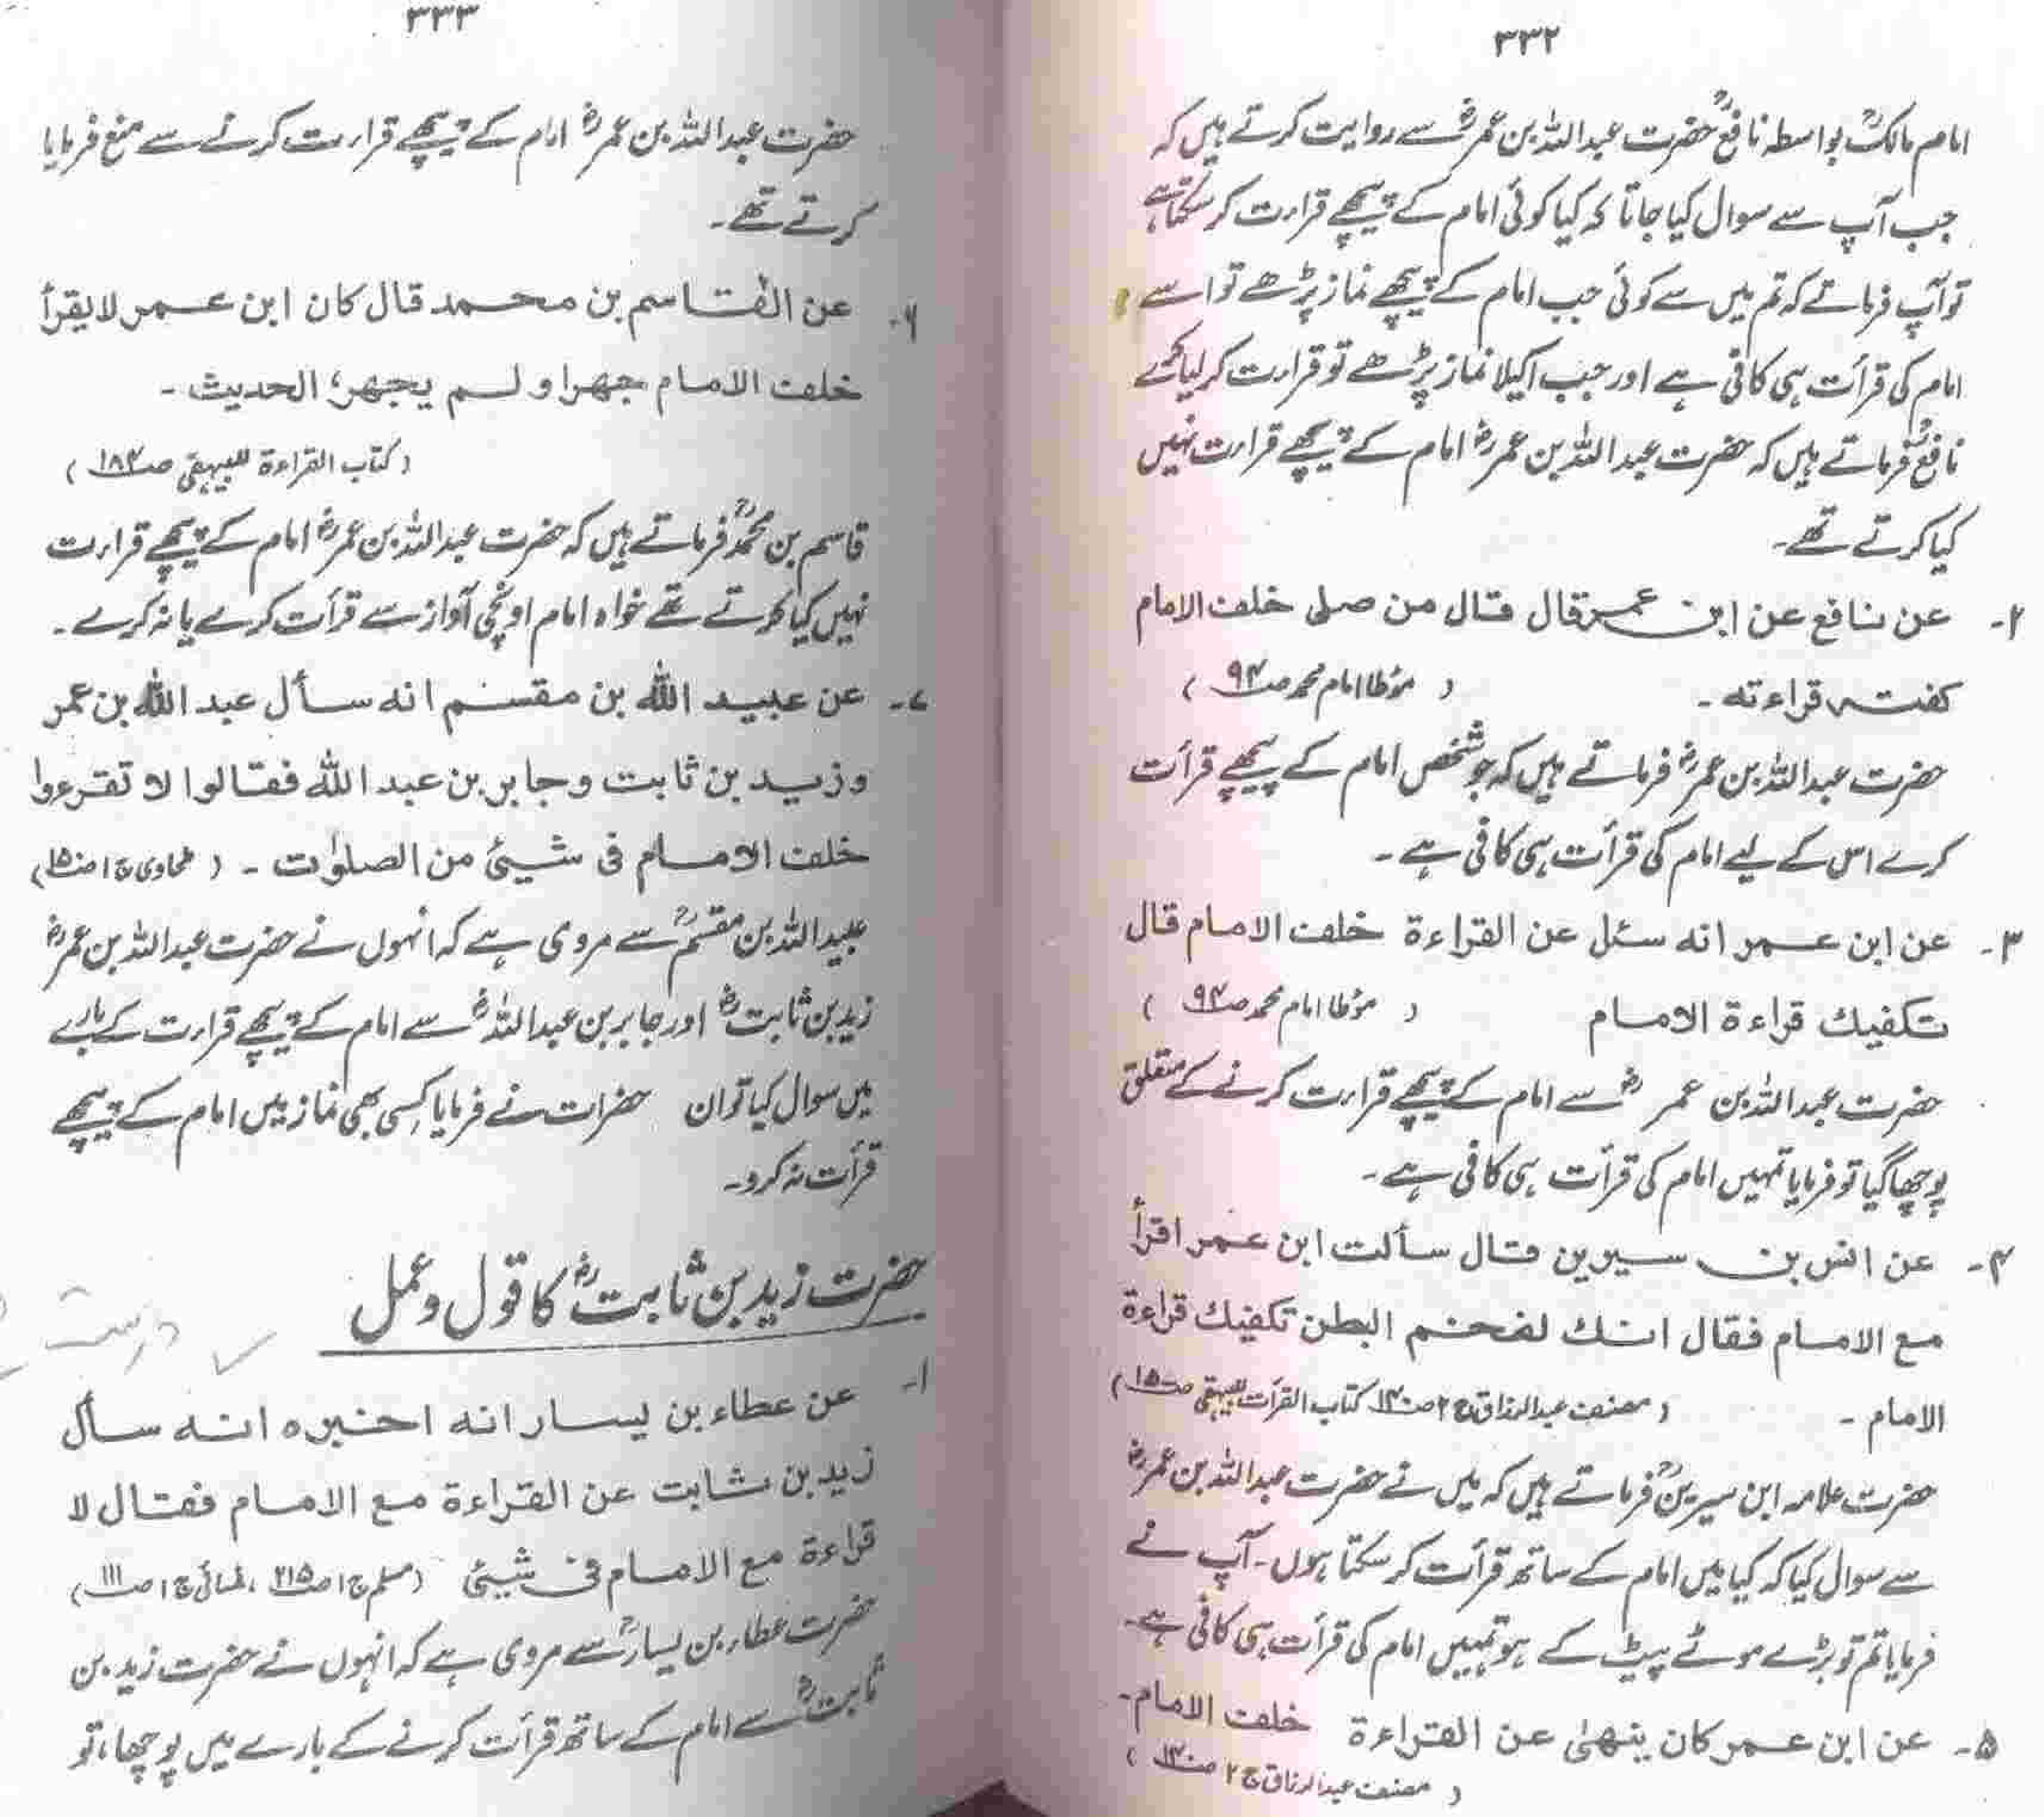 ۳۳۲
امام مالکؒ بواسطہ نافعؒ حضرت عبداللہ بن عمرؓ سے روایت کرتے ہیں کہ
جب آپ سے سوال کیا جاتا کہ کیا کوئی امام کے پیچھے قرارت کر سکتا ہے
تو آپ فرماتے کہ تم میں سے کوئی جب امام کے پیچھے نماز پڑھے تو اسے
امام کی قرأت ہی کافی ہے اور جب اکیلا نماز پڑھے تو قرارت کر لیا کرے
نافعؒ فرماتے ہیں کہ حضرت عبداللہ بن عمرؓ امام کے پیچھے قرارت نہیں
کیا کرتے تھے۔
۲- عن نافع عن ابن عمر قال قال من صلی خلف الامام
کفتہ قراءتہ۔ (مؤطا امام محمد صـ۹۴)
حضرت عبداللہ بن عمرؓ فرماتے ہیں کہ جو شخص امام کے پیچھے قرأت
کرے اس کے لیے امام کی قرأت ہی کافی ہے۔
۳- عن ابن عمر انه سئل عن القراءة خلف الامام قال
تكفيك قراءة الامام (مؤطا امام محمد صـ۹۴)
حضرت عبداللہ بن عمرؓ سے امام کے پیچھے قرارت کرنے کے متعلق
پوچھا گیا تو فرمایا تمہیں امام کی قرأت ہی کافی ہے۔
۴- عن انس بن سيرين قال سألت ابن عمر اقرأ
مع الامام فقال انك لضخم البطن تكفيك قراءة
الامام - (مصنف عبدالرزاق ج۲ صـ۱۴۰ کتاب القرأت للبیہقی صـ۱۵۰)
حضرت علامہ ابن سیرینؒ فرماتے ہیں کہ میں نے حضرت عبداللہ بن عمرؓ
سے سوال کیا کہ کیا میں امام کے ساتھ قرأت کر سکتا ہوں۔ آپ نے
فرمایا تم تو بڑے موٹے پیٹ کے ہو تمہیں امام کی قرأت ہی کافی ہے۔
۵- عن ابن عمر كان ينهىٰ عن القراءة خلف الامام-
(مصنف عبدالرزاق ج۲ صـ۱۴۰)
۳۳۳
حضرت عبداللہ بن عمرؓ امام کے پیچھے قرارت کرنے سے منع فرمایا
کرتے تھے۔
۶- عن القاسم بن محمد قال كان ابن عمر لا يقرأ
خلف الامام جهرا و لم يجهر، الحديث -
(کتاب القراءۃ للبیہقی صـ۱۸۴)
قاسم بن محمدؒ فرماتے ہیں کہ حضرت عبداللہ بن عمرؓ امام کے پیچھے قرارت
نہیں کیا کرتے تھے خواہ امام اونچی آواز سے قرأت کرے یا نہ کرے۔
۷- عن عبيد الله بن مقسم انه سأل عبد الله بن عمر
و زيد بن ثابت و جابر بن عبد الله فقالوا لا تقرءوا
خلف الامام فى شيئ من الصلوٰت - (طحاوی ج۱ صـ۱۵۰)
عبیداللہ بن مقسمؒ سے مروی ہے کہ انہوں نے حضرت عبداللہ بن عمرؓ
زید بن ثابتؓ اور جابر بن عبداللہؓ سے امام کے پیچھے قرارت کے بارے
میں سوال کیا تو ان حضرات نے فرمایا کسی بھی نماز میں امام کے پیچھے
قرأت نہ کرو۔
حضرت زید بن ثابتؓ کا قول و عمل
درست
۱- عن عطاء بن يسار انه اخبره انه سأل
زيد بن ثابت عن القراءة مع الامام فقال لا
قراءة مع الامام فى شيئ (مسلم ج۱ صـ۲۱۵، نسائی ج۱ صـ۱۱۱)
حضرت عطاء بن یسارؒ سے مروی ہے کہ انہوں نے حضرت زید بن
ثابتؓ سے امام کے ساتھ قرأت کرنے کے بارے میں پوچھا، تو